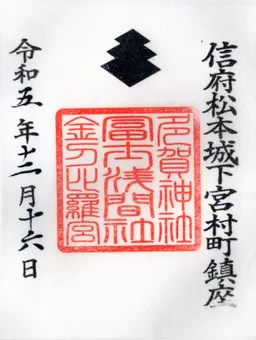 信府松本城下宮村町鎮座
多賀神社
冨士浅間社
金刀比羅宮
令和五年十二月十六日